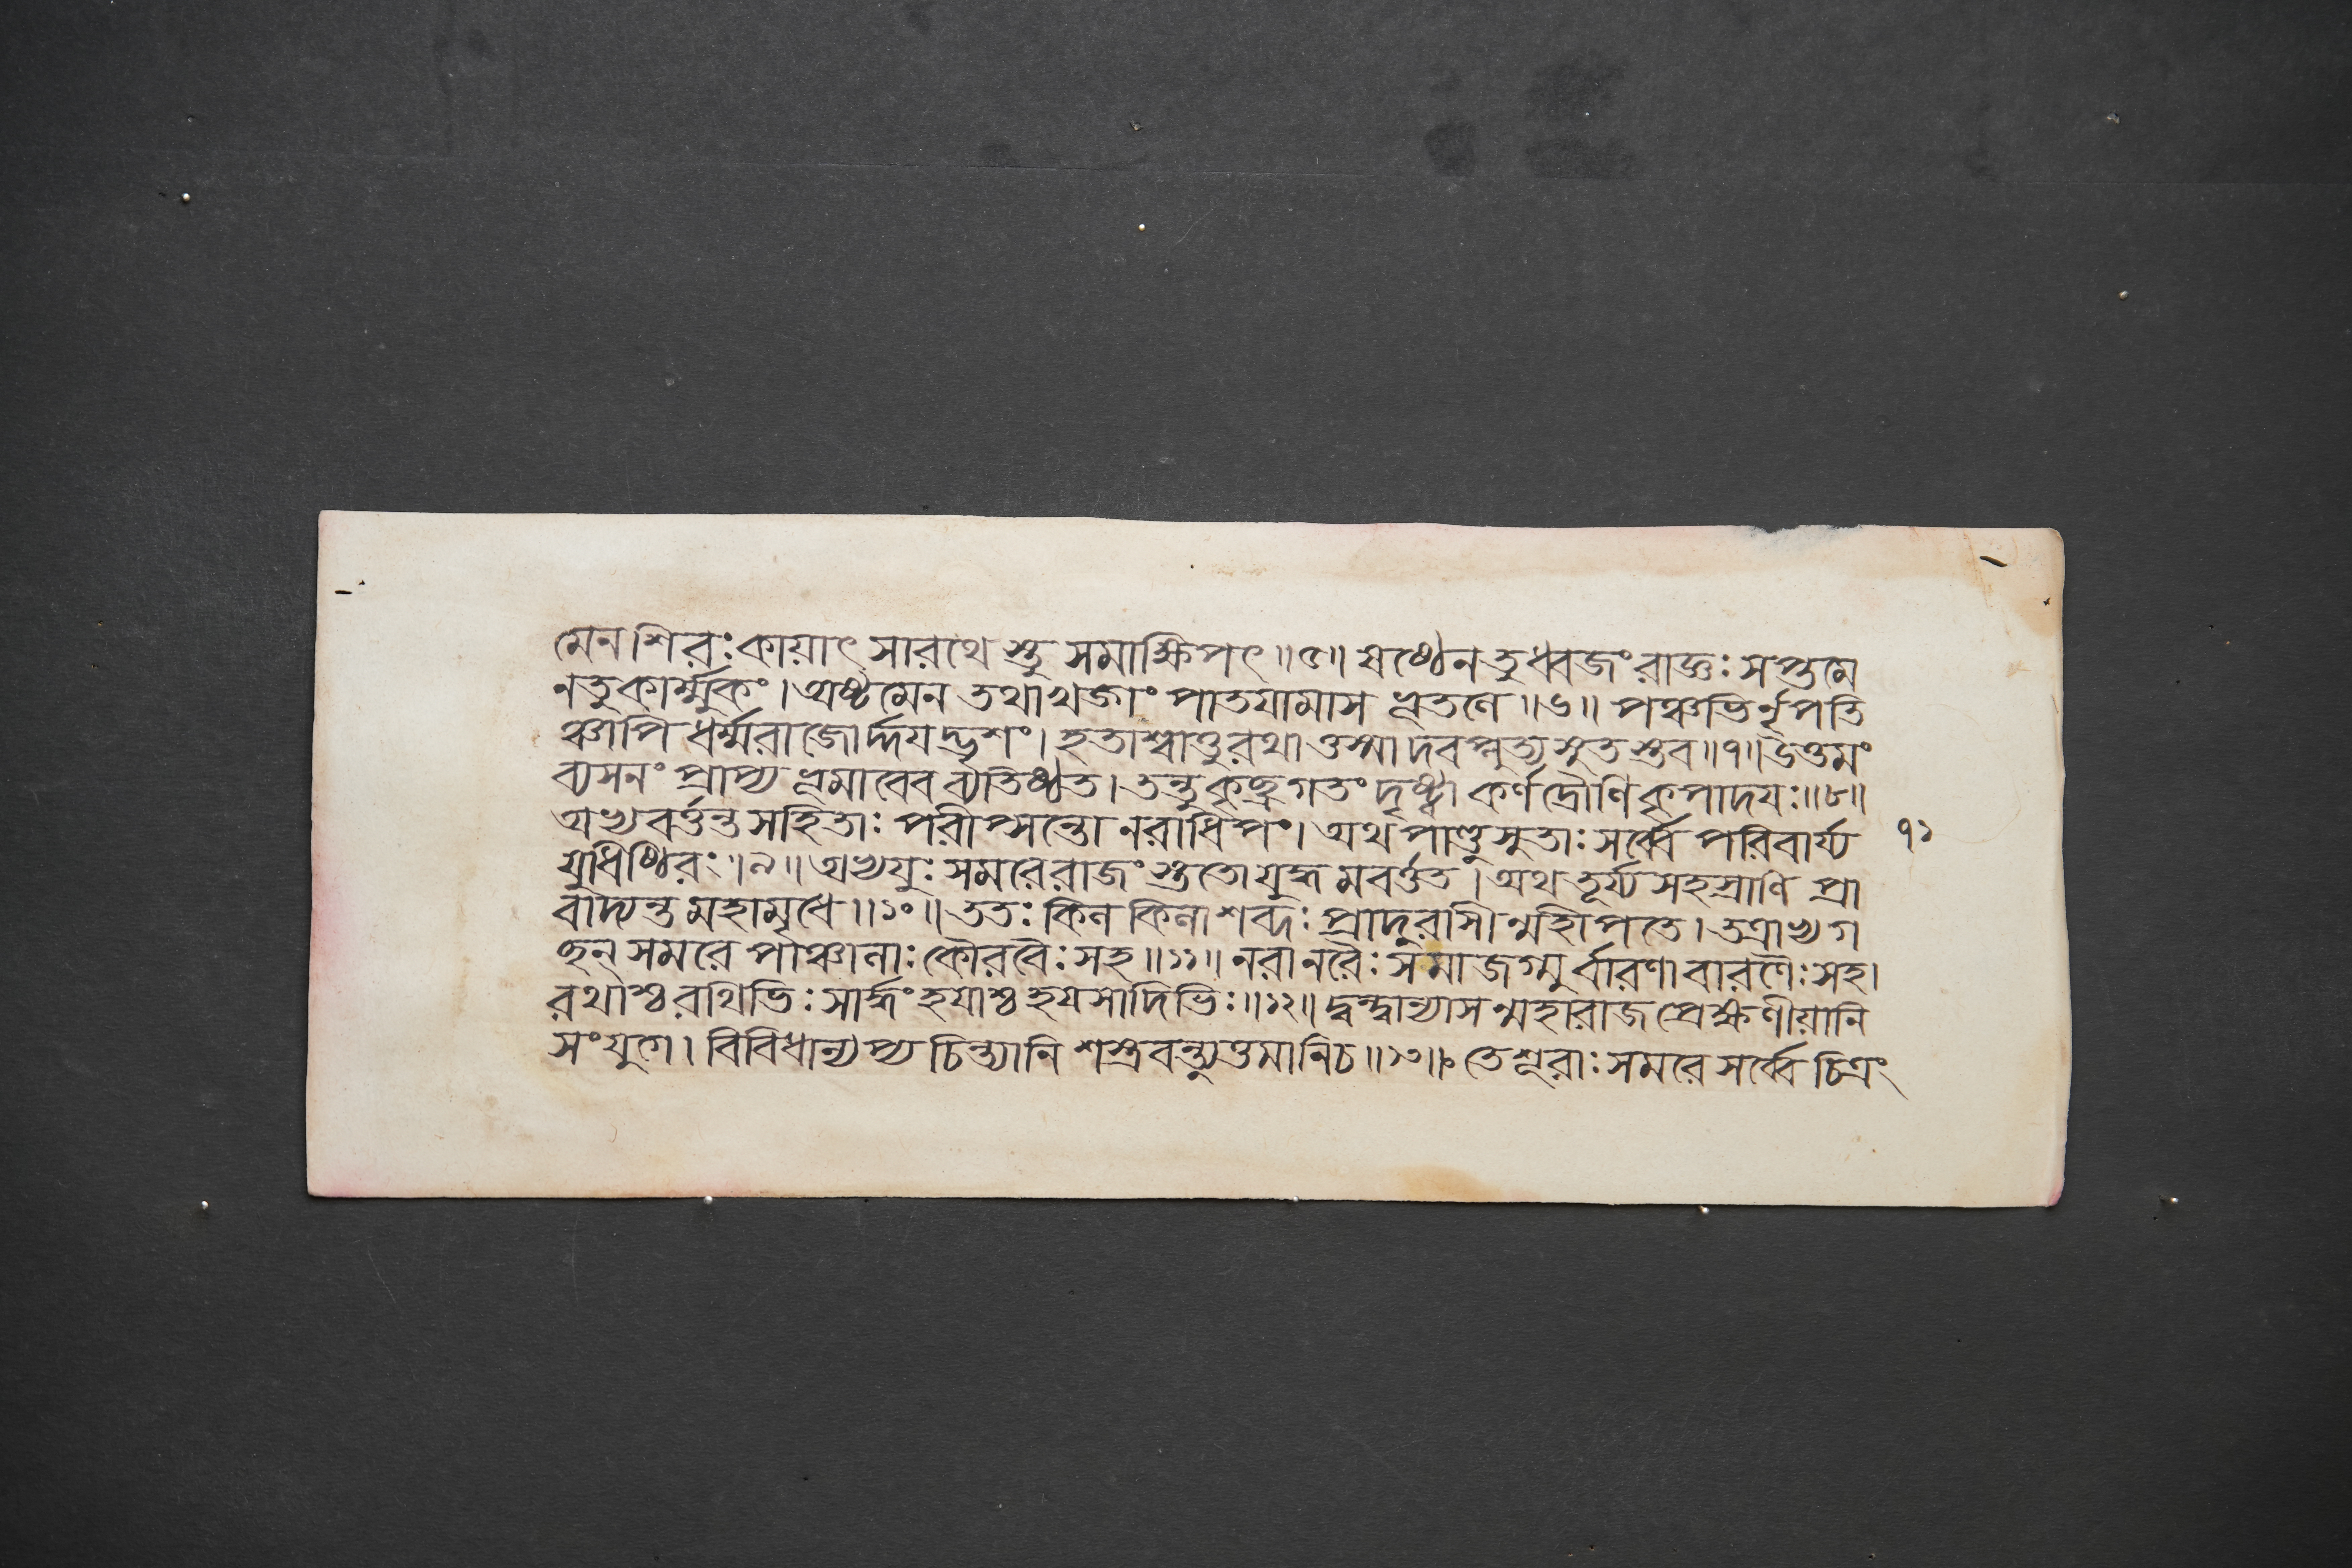 মেন শিরঃ কায়াৎ সারথেস্তু সমাক্ষিপৎ॥৫॥ ষষ্ঠেন তু ধ্বজং রাজ্ঞঃ সপ্তমে
ন তু কার্ম্মুকং। অষ্টমেন তথা খড্গং পাতয়ামাস ভূতলে॥৬॥ পঞ্চভির্নৃপতি
ঞ্চাপি ধর্ম্মরাজোর্দ্দয়দ্ভৃশং। হতাশ্বাত্তু রথাত্তস্মাদবপ্লুত্য সুতস্তব॥৭॥ উত্তমং
ব্যসনং প্রাপ্য ভূমাবেব ব্যতিষ্ঠত। তন্তু কৃচ্ছ্রগতং দৃষ্ট্বা কর্ণদ্রৌণিকৃপাদয়ঃ॥৮॥
অভ্যবর্ত্তন্ত সহিতাঃ পরীপ্সন্তো নরাধিপং। অথ পাণ্ডুসুতাঃ সর্ব্বে পরিবার্য্য
৭১
যুধিষ্ঠিরং॥৯॥ অভ্যযুঃ সমরে রাজংস্ততো যুদ্ধমবর্ত্তত। অথ তূর্য্যসহস্রাণি প্রা
বাদ্যন্ত মহামৃধে॥১০॥ ততঃ কিল কিলা শব্দঃ প্রাদুরাসীন্মহীপতে। তত্রাভ্যগ
চ্ছন্ সমরে পাঞ্চালাঃ কৌরবৈঃ সহ॥১১॥ নরা নরৈঃ সমাজগ্মুর্বারণা বারণৈঃ সহ।
রথাশ্চ রথিভিঃ সার্দ্ধং হয়াশ্চ হয়সাদিভিঃ॥১২॥ দ্বন্দ্বান্যাসন্মহারাজ প্রেক্ষণীয়ানি
সংযুগে। বিবিধান্যপ্যচিন্ত্যানি শস্ত্রবন্ত্যুত্তমানি চ॥১৩॥ তে শূরাঃ সমরে সর্ব্বে চিত্রং